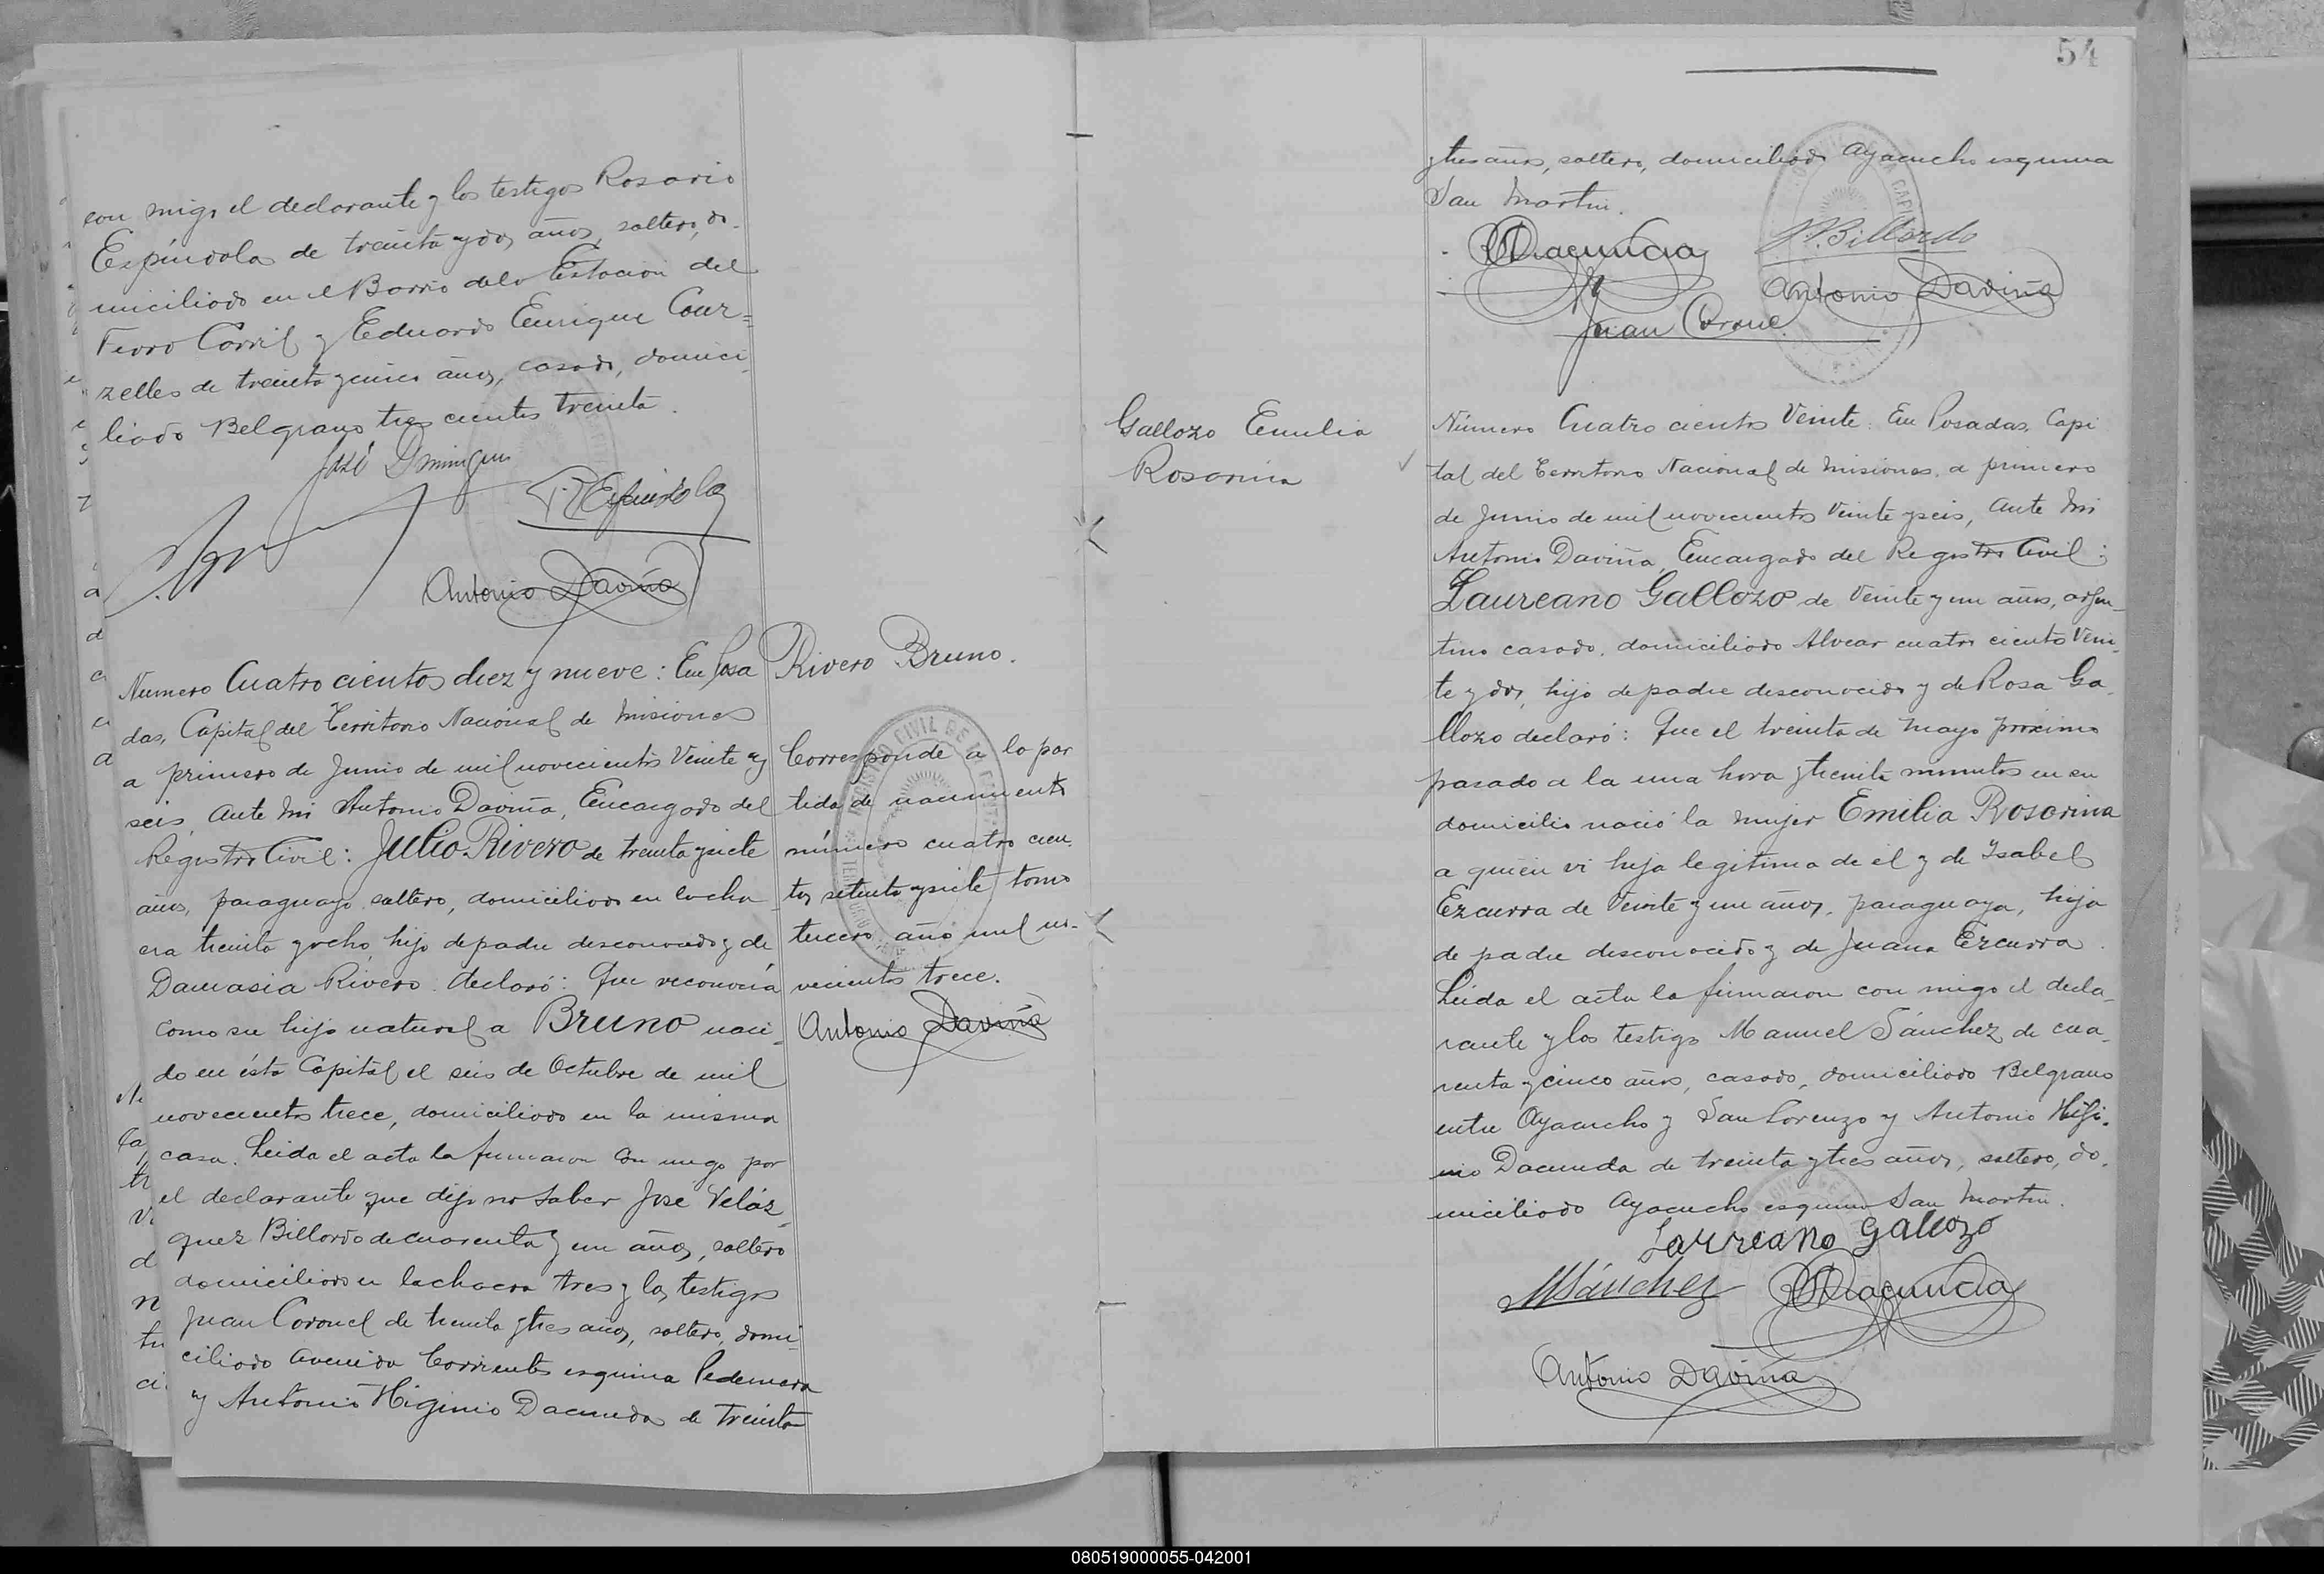 con migo el declarante y los testigos Rosario
Espíndola de treinta y dos años, soltero, do-
miciliado en el Barrio de la Estacion del
Ferro Carril y Eduardo Enrique Cour=
zelles de treinta y cinco años, casado, domici
liado Belgrano tres cientos treinta.
José Dominguez
R Espindola
Antonio Daviña
Numero Cuatro cientos diez y nueve: En Posa
das, Capital del Territorio Nacional de Misiones
a primero de Junio de mil novecientos Veinte y
seis, Ante Mi Antonio Daviña, Encargado del
Registro Civil: Julio Rivero de treinta y siete
años, paraguayo soltero, domiciliado en lacha
cra treinta y ocho, hijo de padre desconocido y de
Damasia Rivero. declaró: Que reconocía
como su hijo natural a Bruno naci-
do en ésta Capital el seis de Octubre de mil
novecientos trece, domiciliado en la misma
casa. Leida el acta la firmaron con migo por
el declarante que dijo no saber José Veláz-
quez Billordo de cuarenta y un años, soltero
domiciliado en lachacra tres y los testigos
Juan Coronel de treinta y tres años, soltero, domi-
ciliado Avenida Corrientes esquina Pedernera
y Antonio Higinio Dacunda de treinta
Rivero Bruno.
Corresponde a la par
tida de nacimiento
número cuatro cien-
tos setenta y siete tomo
tercero año mil no-
vecientos trece.
Antonio Daviña
54
y tres años, soltero, domiciliado Ayacucho esquina
San Martin.
Dacunda
Billordo
Antonio Daviña
Juan Coronel
Gallozo Emilia
Rosarina
Número Cuatro cientos Veinte: En Posadas, Capi
tal del Territorio Nacional de Misiones, a primero
de Junio de mil novecientos Veinte y seis, Ante Mi
Antonio Daviña, Encargado del Registro Civil:
Laureano Gallozo de Veinte y un años, argen-
tino casado, domiciliado Alvear cuatro ciento Vein-
te y dos, hijo de padre desconocido y de Rosa Ga-
llozo declaró: Que el treinta de Mayo próximo
pasado a la una hora y treinta minutos en su
domicilio nació la mujer Emilia Rosarina
a quien vi hija legitima de él y de Ysabel
Ezcurra de Veinte y un años, paraguaya, hija
de padre desconocido y de Juana Ezcurra.
Leida el acta la firmaron con migo el decla-
rante y los testigo Manuel Sánchez de cua-
renta y cinco años, casado, domiciliado Belgrano
entre Ayacucho y San Lorenzo y Antonio Higi-
nio Dacunda de treinta y tres años, soltero, do-
miciliado Ayacucho esquina San Martin.
Laureano Gallozo
MSánchez
Dacunda
Antonio Daviña
080519000055-042001